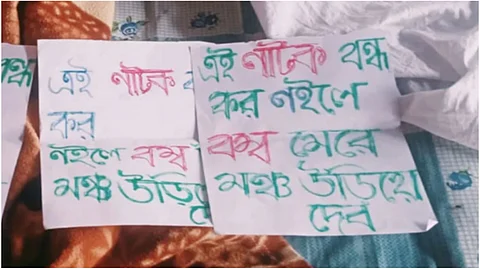 ন্ধ
এই নাটক ব
কর
নইলে বম্ব
মঞ্চ উড়িয়ে
এই নাটক বন্ধ
কর নইলে
বম্ব মেরে
মঞ্চ উড়িয়ে
দেব